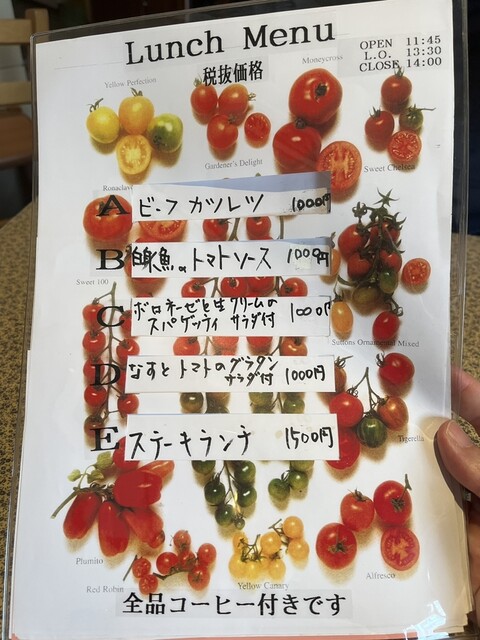 Lunch Menu
税抜価格
OPEN 11:45
L.O. 13:30
CLOSE 14:00
Yellow Perfection
Moneycross
Gardener's Delight
Sweet Chelsea
A ビーフカツレツ 1000円
B 白身魚のトマトソース 1000円
Sweet 100
C ボロネーゼと生クリームの
スパゲッティ サラダ付 1000円
Suttons Ornamental Mixed
D なすとトマトのグラタン
サラダ付 1000円
E ステーキランチ 1500円
Tigerella
Plumito
Red Robin
Yellow Canary
Alfresco
全品コーヒー付きです